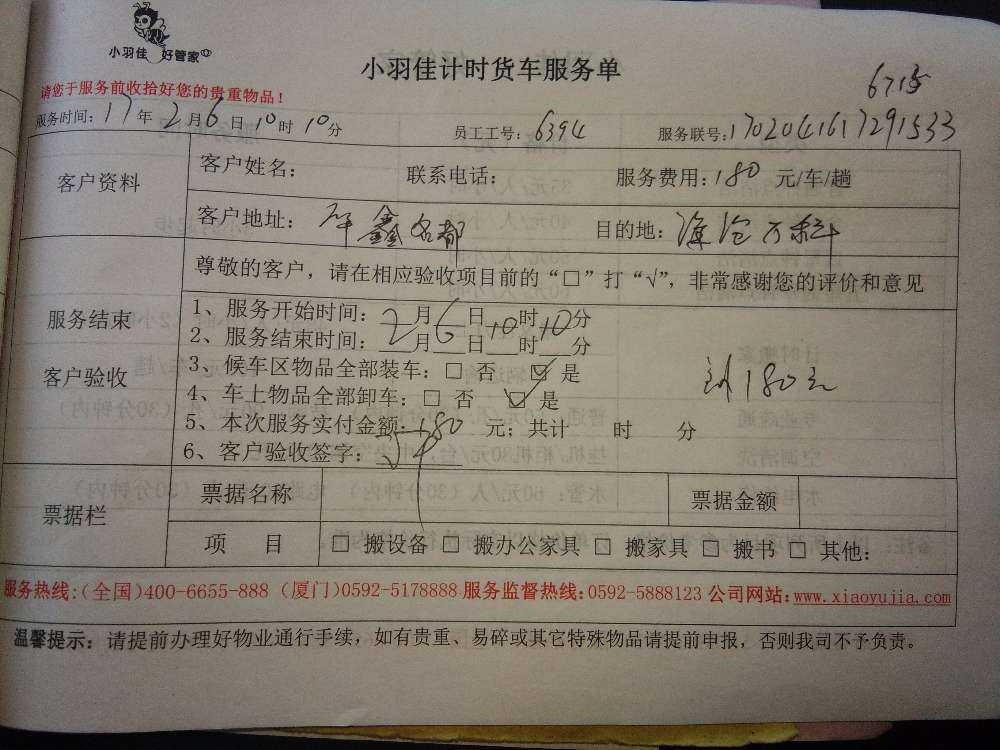 小羽佳 好管家
小羽佳计时货车服务单
请您于服务前收拾好您的贵重物品！
服务时间：17年2月6日10时10分 员工工号：6394 服务联号：1702041617291533
客户资料
客户姓名： 联系电话： 服务费用：180 元/车/趟
客户地址：鑫名都 目的地：海沧万科
服务结束
客户验收
尊敬的客户，请在相应验收项目前的“□”打“√”，非常感谢您的评价和意见
1、服务开始时间：2月6日10时10分
2、服务结束时间：___月___日___时___分
3、候车区物品全部装车：□ 否 ☑ 是
4、车上物品全部卸车：□ 否 ☑ 是
180元
5、本次服务实付金额：180 元；共计 时 分
6、客户验收签字：
票据栏
票据名称 票据金额
项 目 □ 搬设备 □ 搬办公家具 □ 搬家具 □ 搬书 □ 其他：
服务热线：(全国)400-6655-888 (厦门)0592-5178888 服务监督热线：0592-5888123 公司网站：www.xiaoyujia.com
温馨提示：请提前办理好物业通行手续，如有贵重、易碎或其它特殊物品请提前申报，否则我司不予负责。